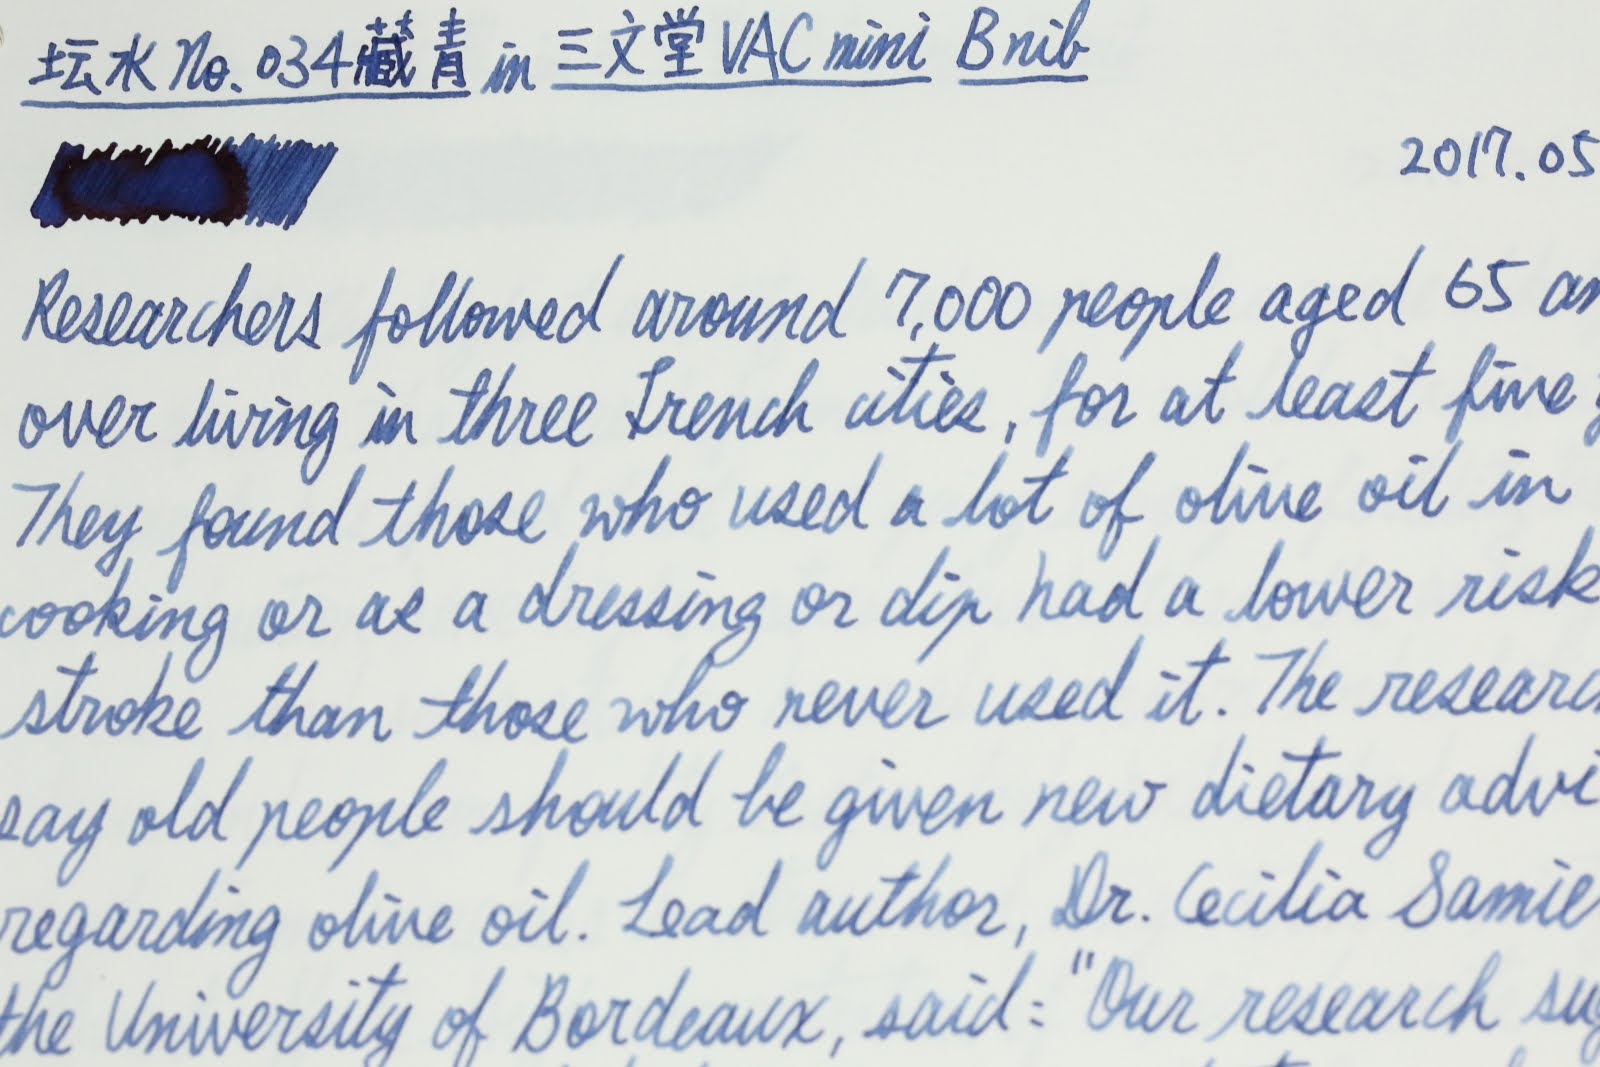 坛水 No. 034 藏青 in 三文堂 VAC mini B nib
2017.05
Researchers followed around 7,000 people aged 65 an
over living in three French cities, for at least five
They found those who used a lot of olive oil in
cooking or as a dressing or dip had a lower risk
stroke than those who never used it. The researc
say old people should be given new dietary advi
regarding olive oil. Lead author, Dr. Cecilia Samie
the University of Bordeaux, said: "Our research sug